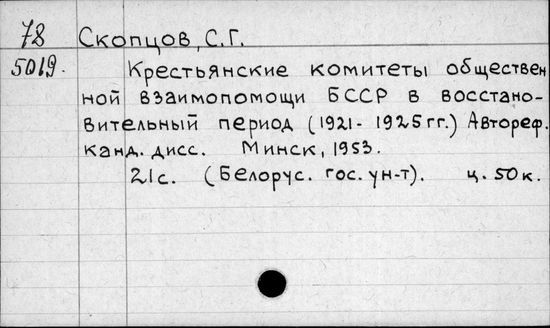 78 Скопцов, С.Г.
5019. Крестьянские комитеты обществен
ной взаимопомощи БССР в восстано-
вительный период (1921-1925 гг.) Автореф.
канд. дисс. Минск, 1953.
21с. (Белорус. гос. ун-т). ц. 50 к.